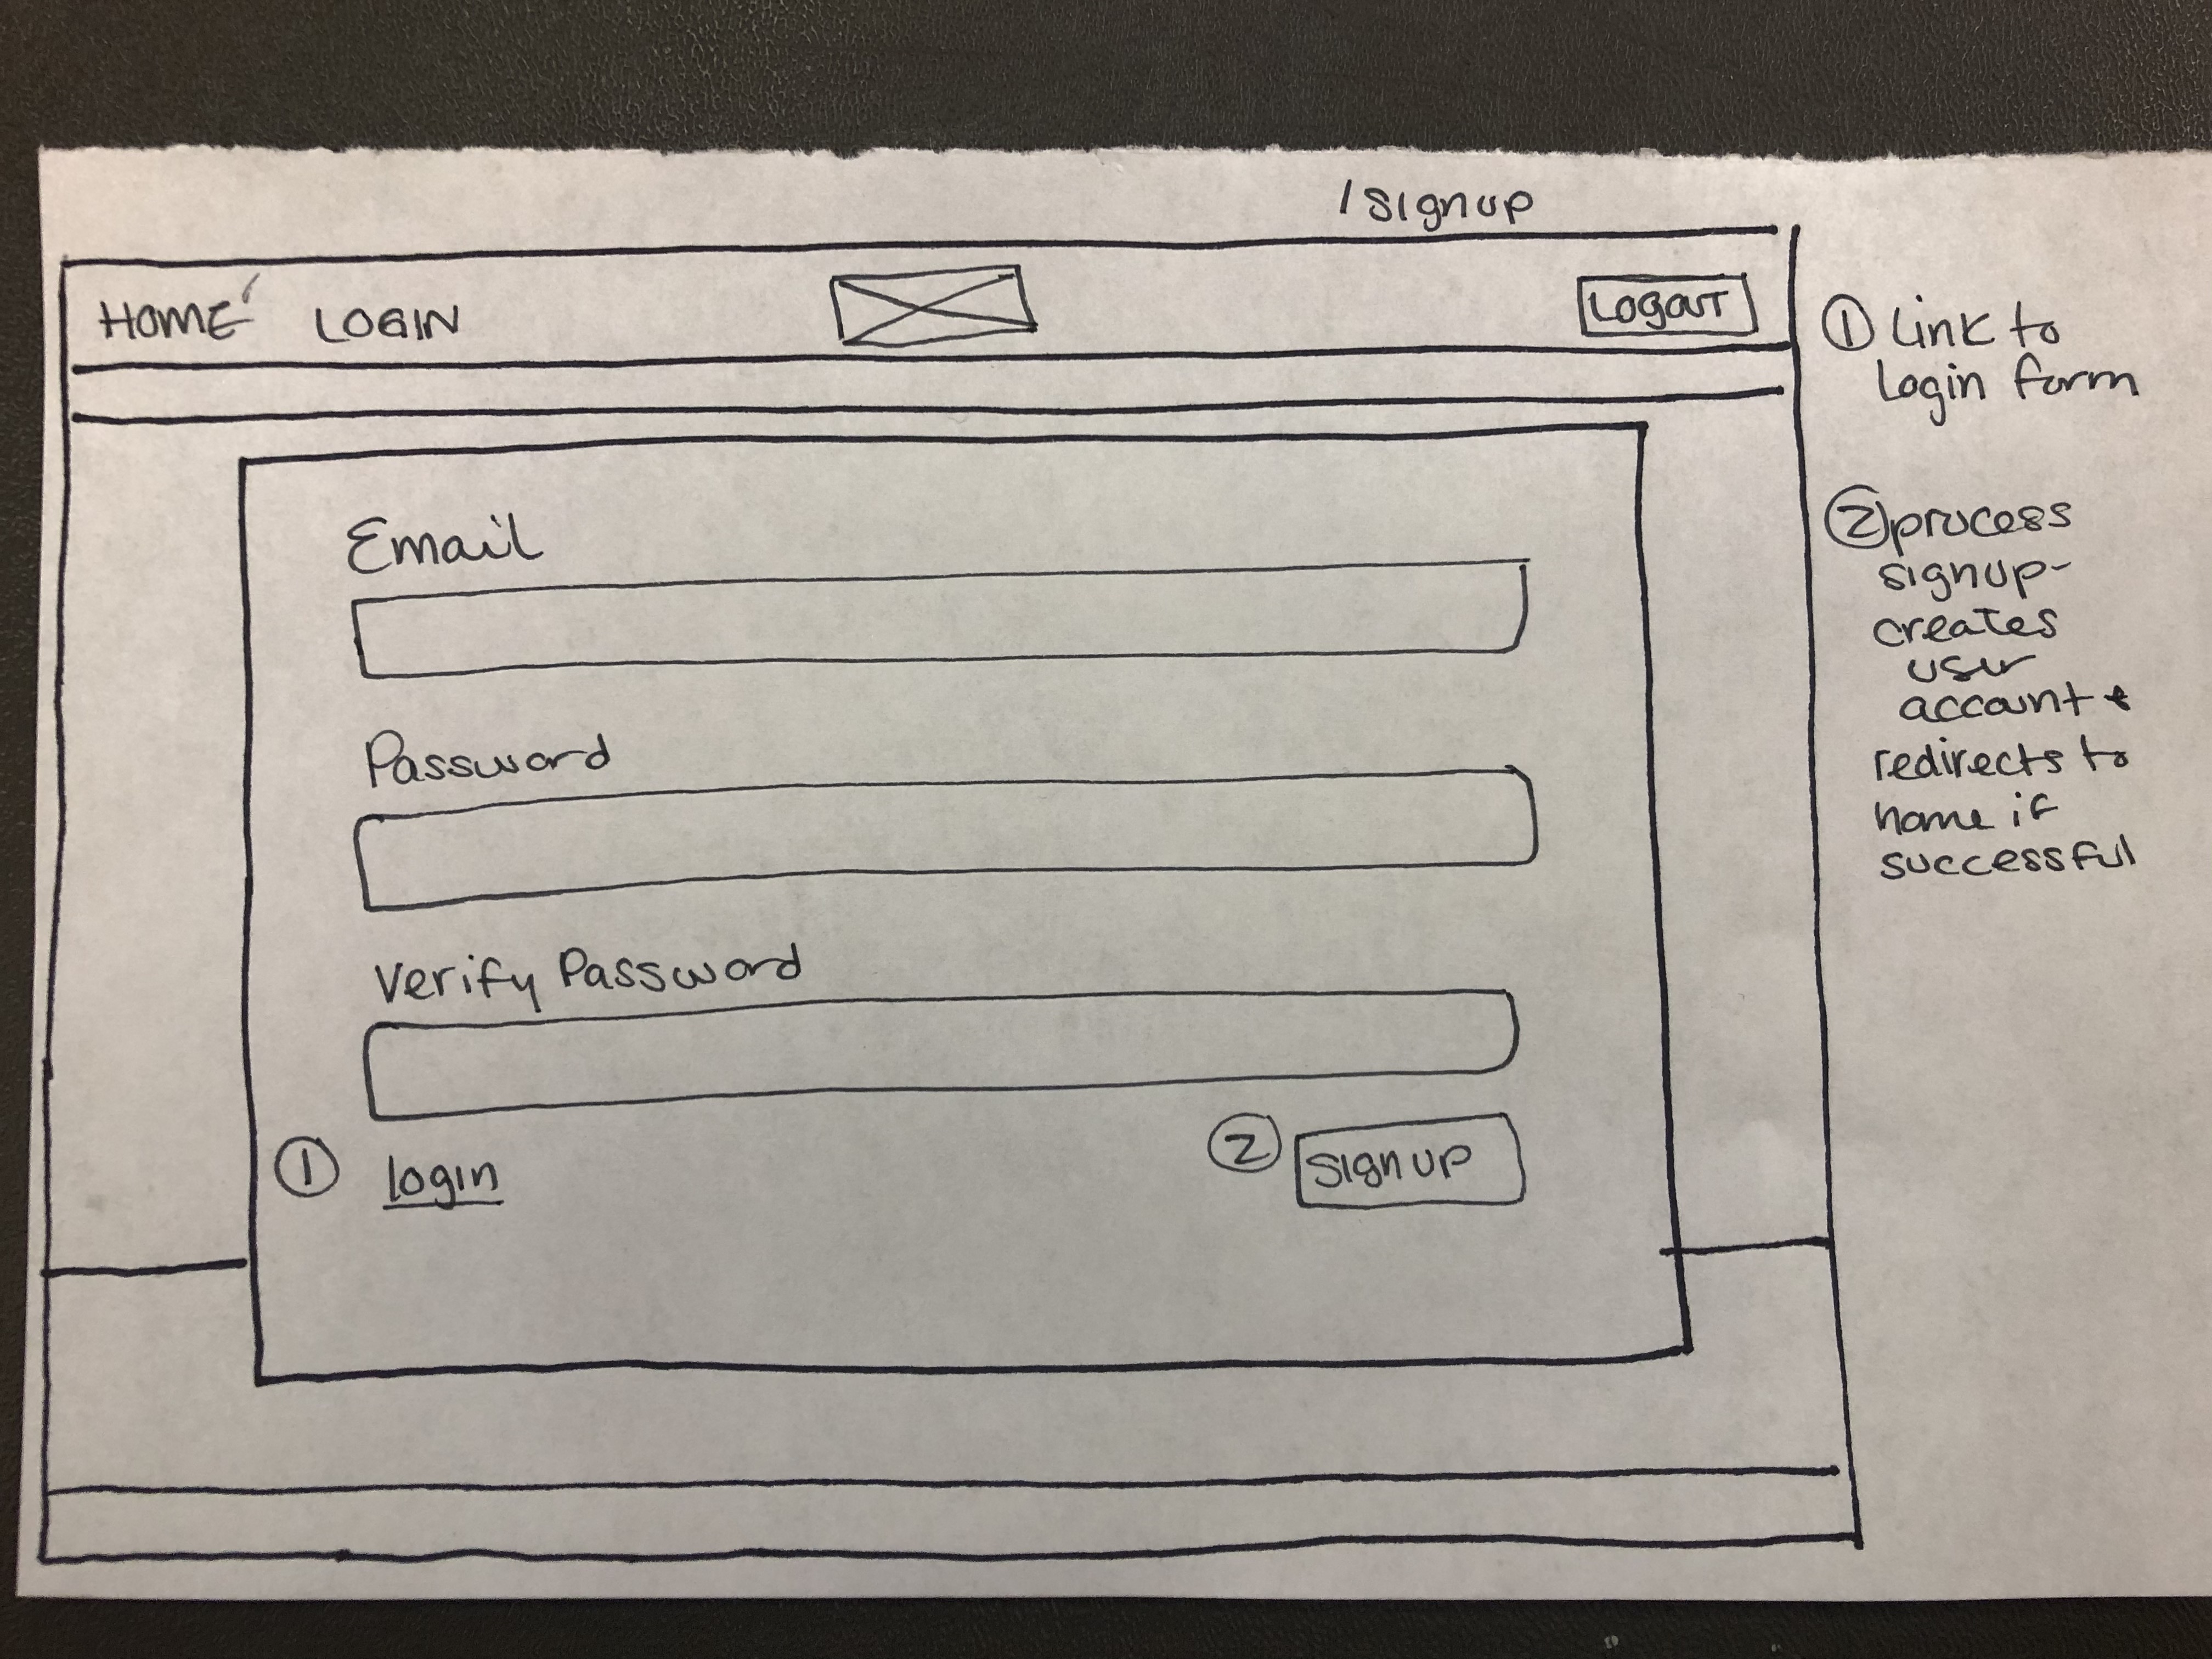 /signup
HOME LOGIN
LOGOUT
Email
Password
Verify Password
① login
② signup
① Link to
Login form
② process
signup-
creates
user
account &
redirects to
home if
successful